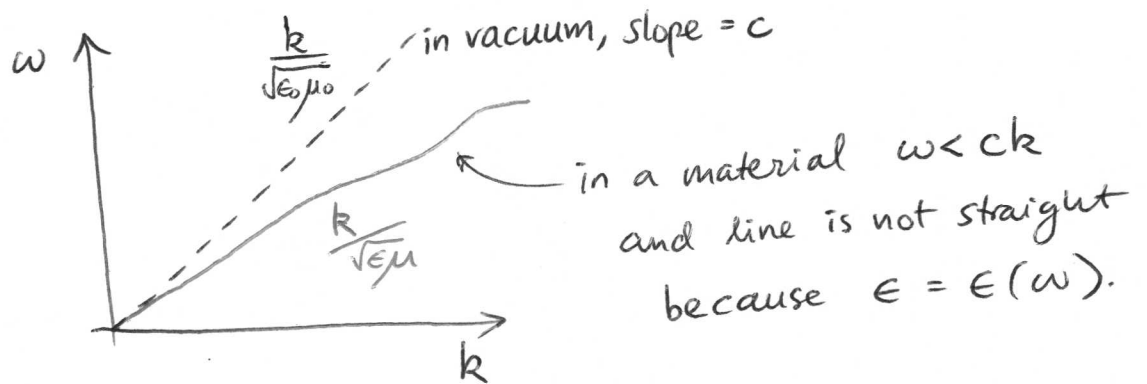 ω
k/√ε₀μ₀
in vacuum, slope = c
in a material ω < ck
and line is not straight
because ε = ε(ω).
k/√εμ
k